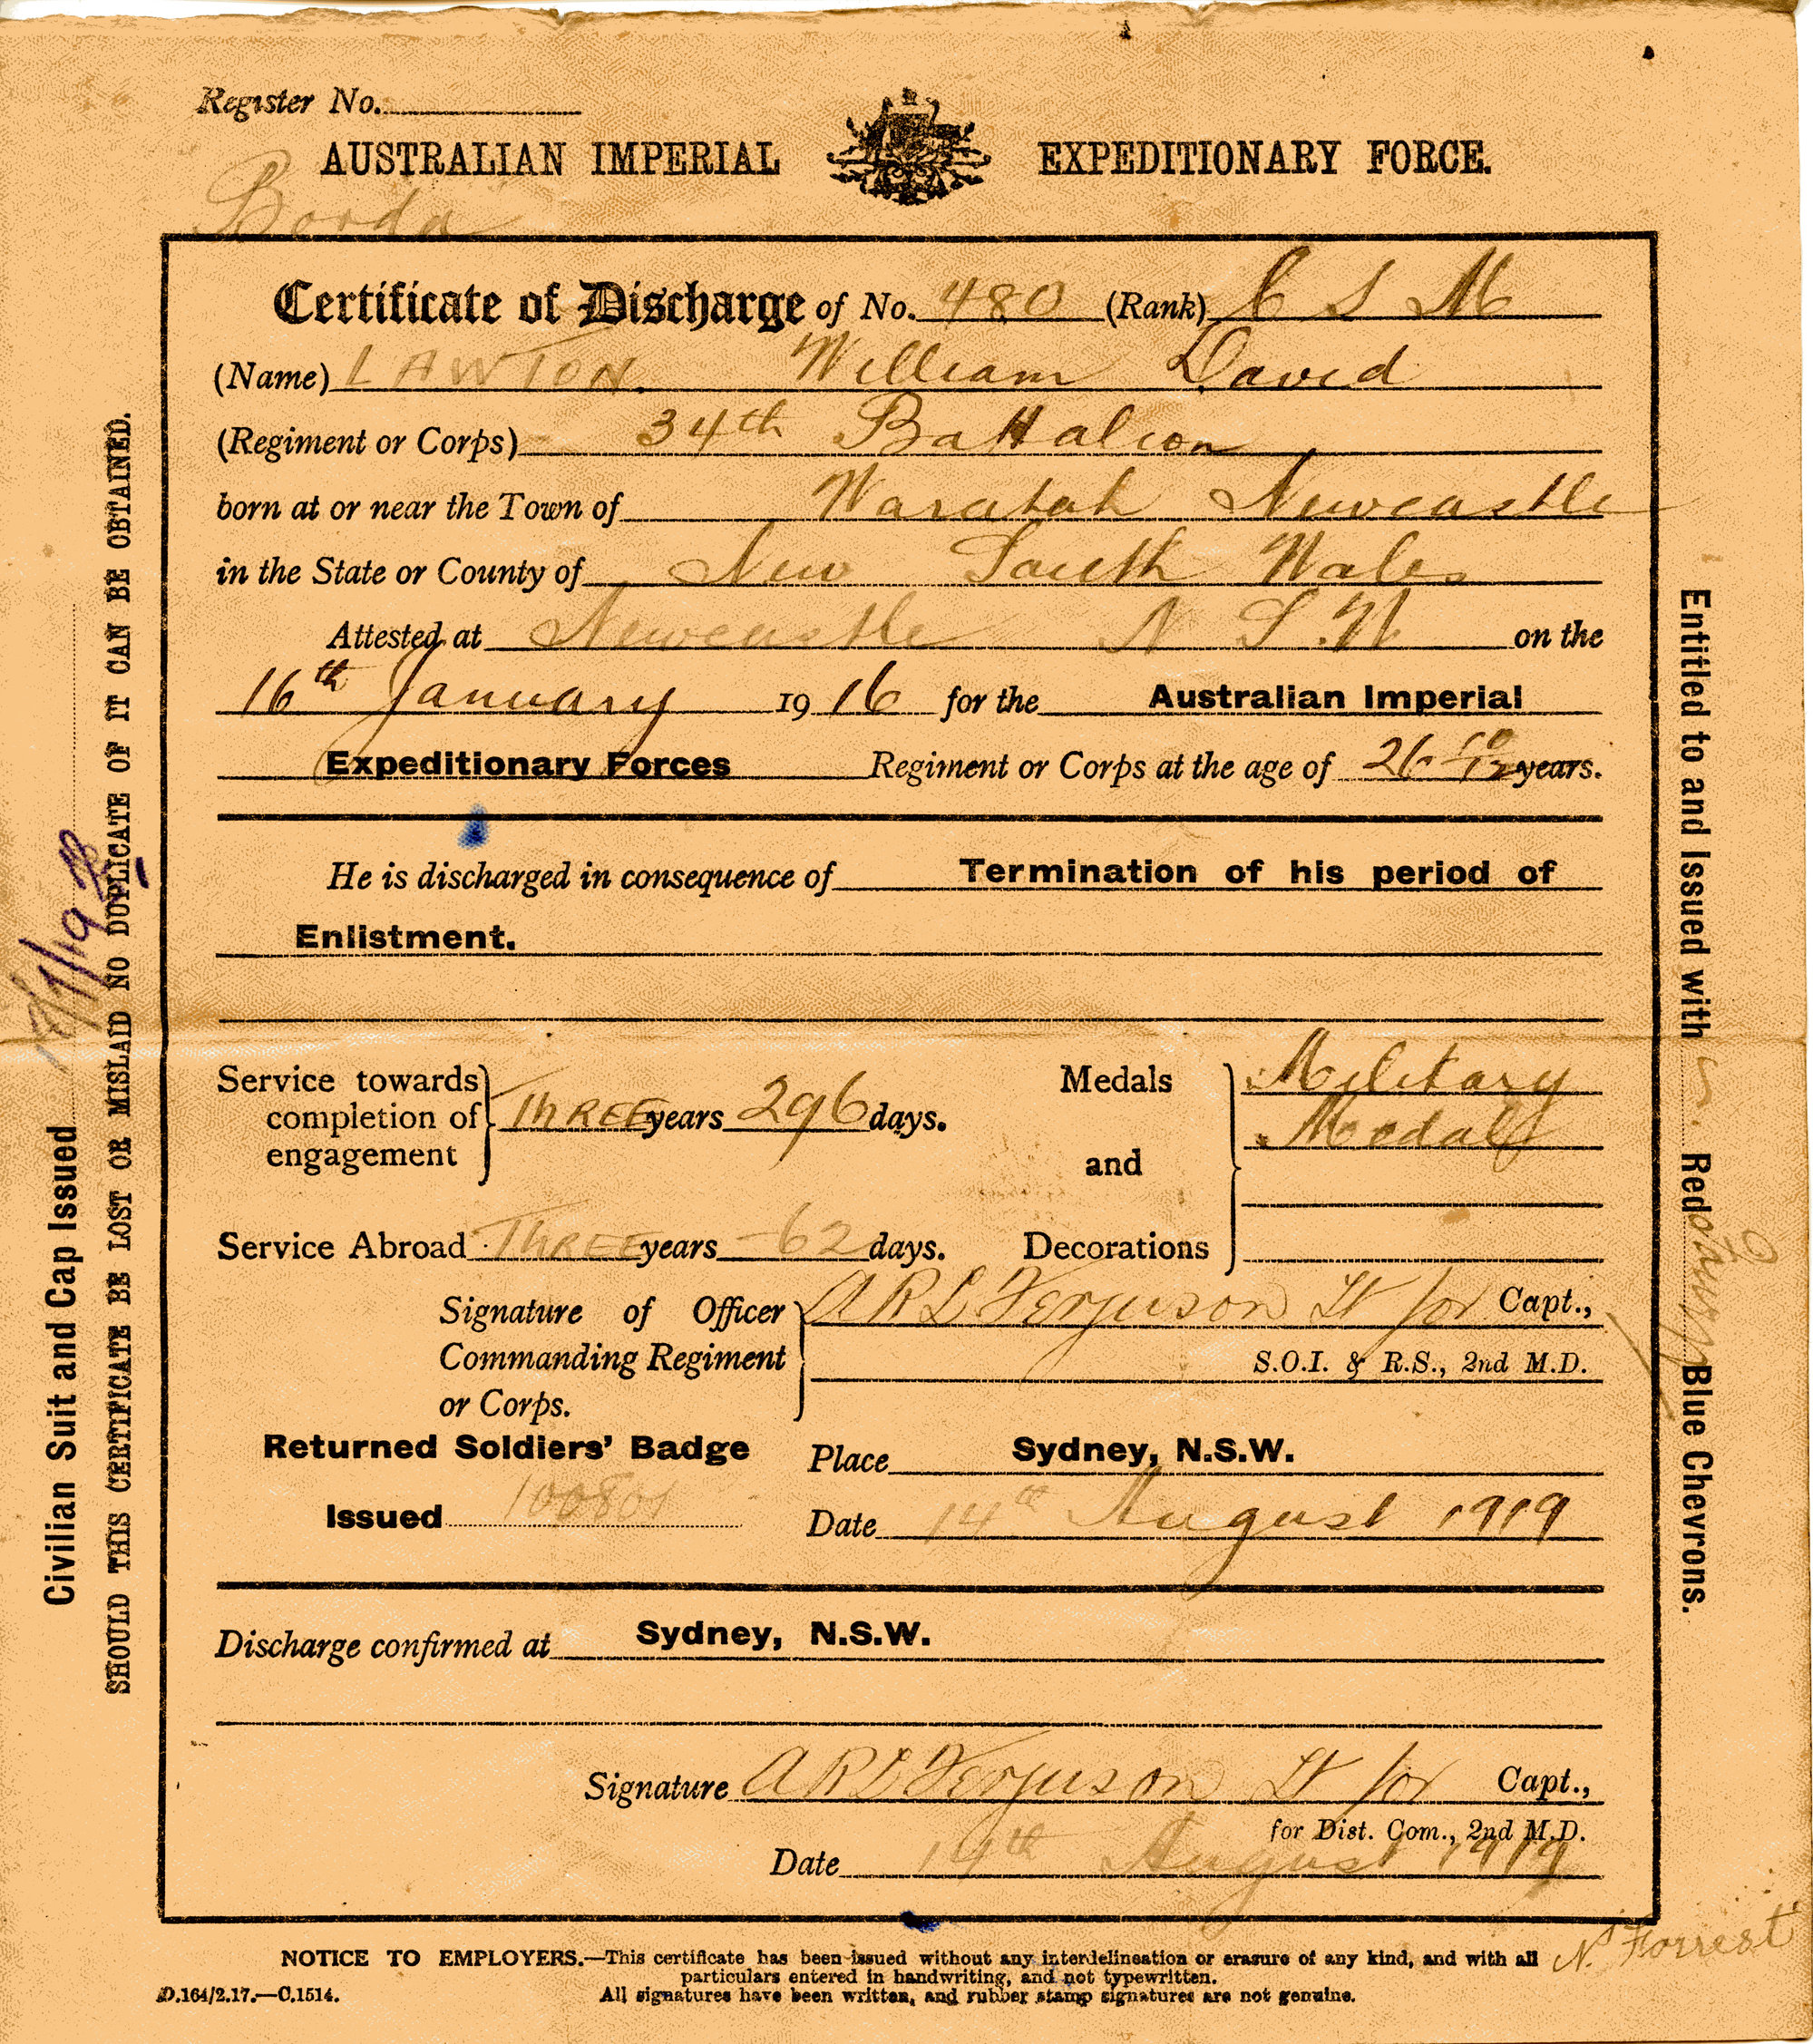 Register No.
AUSTRALIAN IMPERIAL EXPEDITIONARY FORCE.
Borda
Certificate of Discharge of No. 480 (Rank) C S M
(Name) LAWTON. William David
(Regiment or Corps) 34th Battalion
born at or near the Town of Waratah Newcastle
in the State or County of New South Wales
Attested at Newcastle N.S.W on the
16th January 1916 for the Australian Imperial
Expeditionary Forces Regiment or Corps at the age of 26 10/12 years.
He is discharged in consequence of Termination of his period of
Enlistment.
Service towards completion of engagement } THREE years 296 days.
Medals and Decorations } Military
Medal
Service Abroad THREE years 62 days.
Signature of Officer Commanding Regiment or Corps. } A R L Ferguson Lt for Capt.,
S.O.I. & R.S., 2nd M.D.
Returned Soldiers' Badge
Issued 100801
Place Sydney, N.S.W.
Date 14th August 1919
Discharge confirmed at Sydney, N.S.W.
Signature A R L Ferguson Lt for Capt.,
for Dist. Com., 2nd M.D.
Date 14th August 1919
NOTICE TO EMPLOYERS.—This certificate has been issued without any interdelineation or erasure of any kind, and with all
particulars entered in handwriting, and not typewritten.
All signatures have been written, and rubber stamp signatures are not genuine.
D.164/2.17.—C.1514.
N. Forrest
Civilian Suit and Cap Issued
SHOULD THIS CERTIFICATE BE LOST OR MISLAID NO DUPLICATE OF IT CAN BE OBTAINED.
Entitled to and Issued with Red Blue Chevrons.